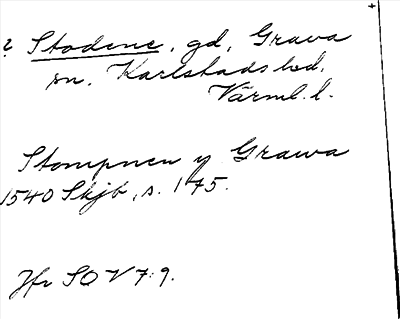 ? Stodene, gd, Grava
sn. Karlstads hd,
Värml. l.
Stompnen y Grawa
1540 Skjb, s. 175.
Jfr SO V 7:9.